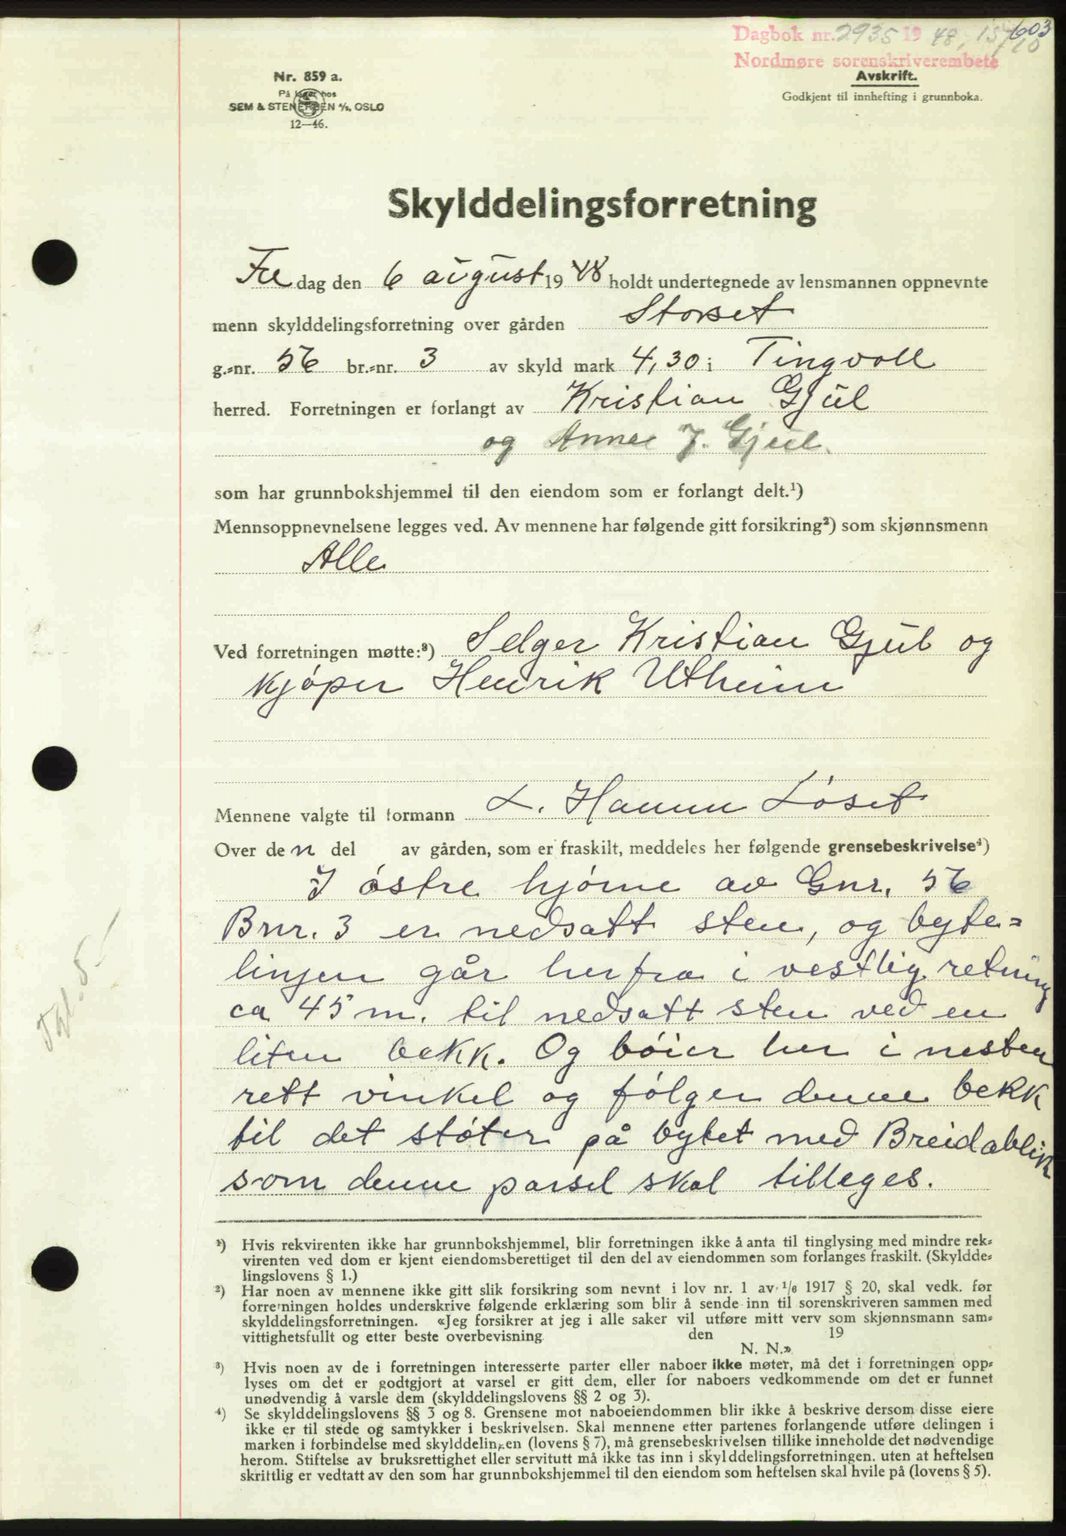 603
Dagbok nr. 2935 19 48, 15/10
Nordmøre sorenskriverembete
Nr. 859 a.
På lager hos
SEM & STENERSEN A/S, OSLO
12—46.
Avskrift.
Godkjent til innhefting i grunnboka.
Skylddelingsforretning
Fre dag den 6 august 19 48 holdt undertegnede av lensmannen oppnevnte
menn skylddelingsforretning over gården Storset
g.-nr. 56 br.-nr. 3 av skyld mark 4,30 i Tingvoll
herred. Forretningen er forlangt av Kristian Gjül
og Anne J. Gjül.
som har grunnbokshjemmel til den eiendom som er forlangt delt.¹)
Mennsoppnevnelsene legges ved. Av mennene har følgende gitt forsikring²) som skjønnsmenn
Alle
Ved forretningen møtte:³) Selger Kristian Gjül og
kjøper Henrik Utheim
Mennene valgte til formann L. Hamm Løset
Over den del av gården, som er fraskilt, meddeles her følgende grensebeskrivelse⁴)
I østre hjørne av Gnr. 56
Bnr. 3 er nedsatt sten, og byte=
linjen går herfra i vestlig retning
ca 45 m. til nedsatt sten ved en
liten bekk. Og bøier her i nesten
rett vinkel og følger denne bekk
til det støter på bytet med Breidablik
som denne parsel skal tilleges.
¹) Hvis rekvirenten ikke har grunnbokshjemmel, blir forretningen ikke å anta til tinglysing med mindre rek-
virenten ved dom er kjent eiendomsberettiget til den del av eiendommen som forlanges fraskilt. (Skyldde-
lingslovens § 1.)
²) Har noen av mennene ikke gitt slik forsikring som nevnt i lov nr. 1 av 1/6 1917 § 20, skal vedk. før
forretningen holdes underskrive følgende erklæring som blir å sende inn til sorenskriveren sammen med
skylddelingsforretningen. «Jeg forsikrer at jeg i alle saker vil utføre mitt verv som skjønnsmann sam-
vittighetsfullt og etter beste overbevisning den 19
N. N.»
³) Hvis noen av de i forretningen interesserte parter eller naboer ikke møter, må det i forretningen opp-
lyses om det er godtgjort at varsel er gitt dem, eller for naboers vedkommende om det er funnet
unødvendig å varsle dem (skylddelingslovens §§ 2 og 3).
⁴) Se skylddelingslovens §§ 3 og 8. Grensene mot naboeiendommen blir ikke å beskrive dersom disse eiere
ikke er til stede og samtykker i beskrivelsen. Skal mennene etter partenes forlangende utføre delingen i
marken i forbindelse med skylddelingen (lovens § 7), må grensebeskrivelsen tillike inneholde det nødvendige
herom. Stiftelse av bruksrettighet eller servitutt må ikke tas inn i skylddelingsforretningen, uten at heftelsen
skriftlig er vedtatt av den som har grunnbokshjemmel til den eiendom som heftelsen skal hvile på (lovens § 5).